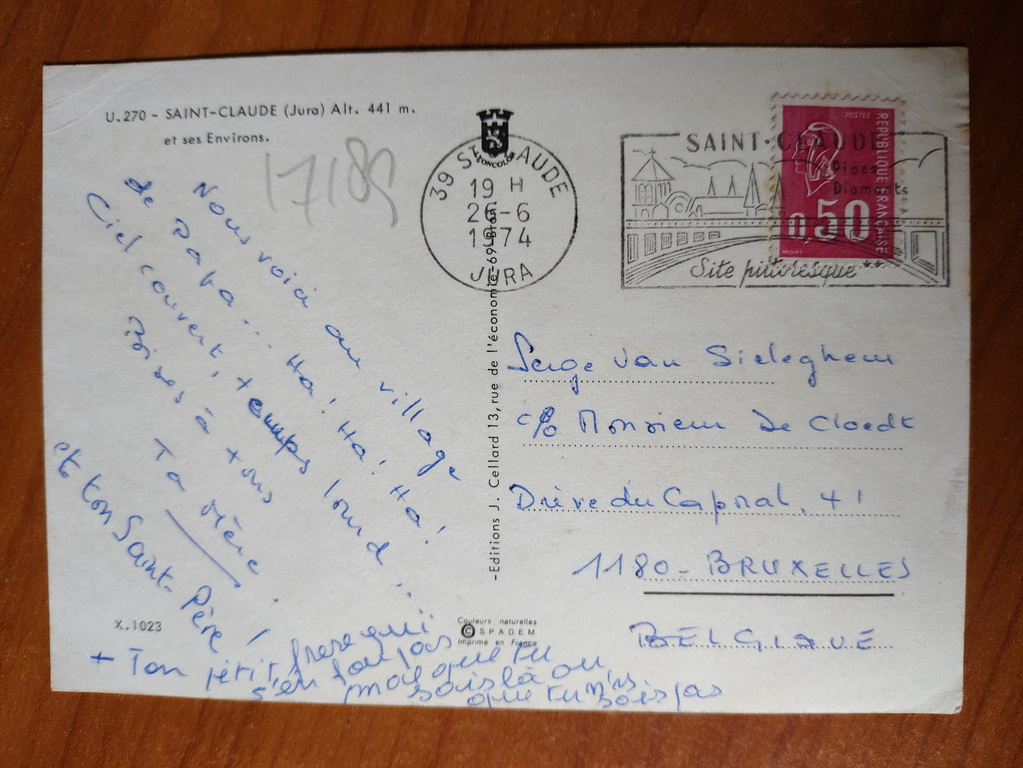 U.270 - SAINT-CLAUDE (Jura) Alt. 441 m.
et ses Environs.
17189
39 ST CLAUDE
19 H
26-6
1974
JURA
SAINT-CLAUDE
Pipes
Diamants
Site pittoresque
POSTES
REPUBLIQUE FRANÇAISE
0,50
Nous voici au village
de Papa... Ha! Ha! Ha!
Ciel couvert, temps lourd...
Bises à tous
Ta Mère
et ton Saint-Père!
+ Ton petit frere qui
s'en fou pas
mal que tu
sois là ou
que tu n'y
sois pas
-Editions J. Cellard 13, rue de l'économie-69-Bron
Serge Van Sieleghem
c/o Monsieur De Cloedt
Drève du Caporal, 41
1180 - BRUXELLES
BELGIQUE
X.1023
Couleurs naturelles
© S.P.A.D.E.M.
Imprimé en France